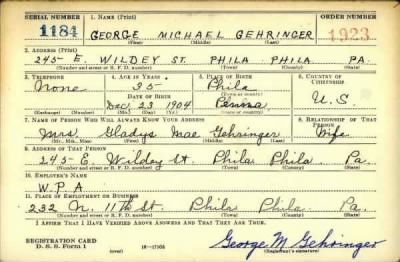 SERIAL NUMBER 1. NAME (Print) ORDER NUMBER
1184 GEORGE MICHAEL GEHRINGER 1923
(First) (Middle) (Last)
2. ADDRESS (Print)
245 E. WILDEY ST. PHILA PHILA PA.
(Number and street or R. F. D. number) (Town) (County) (State)
3. TELEPHONE 4. AGE IN YEARS 5. PLACE OF BIRTH 6. COUNTRY OF CITIZENSHIP
None 35 Phila
(Town or county)
DATE OF BIRTH
Dec. 23 1904 Penna U.S.
(Mo.) (Day) (Yr.) (State or country)
7. NAME OF PERSON WHO WILL ALWAYS KNOW YOUR ADDRESS 8. RELATIONSHIP OF THAT PERSON
Mrs. Gladys Mae Gehringer Wife
(Mr., Mrs., Miss) (First) (Middle) (Last)
9. ADDRESS OF THAT PERSON
245 E. Wildey St. Phila Phila Pa.
(Number and street or R. F. D. number) (Town) (County) (State)
10. EMPLOYER'S NAME
W.P.A
11. PLACE OF EMPLOYMENT OR BUSINESS
232 N. 11th St Phila Phila Pa.
(Number and street or R. F. D. number) (Town) (County) (State)
I AFFIRM THAT I HAVE VERIFIED ABOVE ANSWERS AND THAT THEY ARE TRUE.
REGISTRATION CARD
D. S. S. Form 1 (over) George M Gehringer
(Registrant's signature)